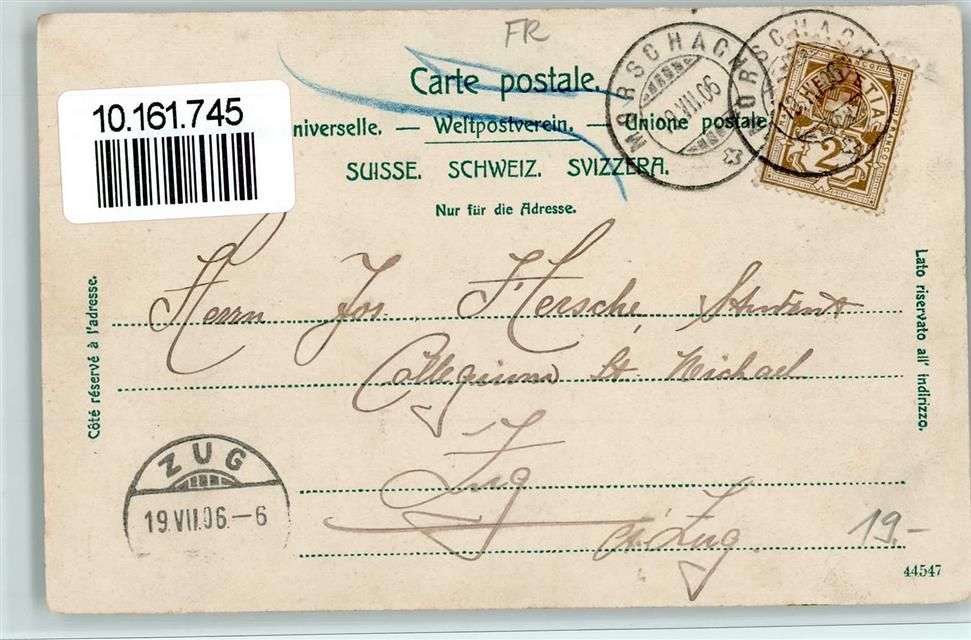 FR
Carte postale.
10.161.745
niverselle. — Weltpostverein. — Unione postale
SUISSE. SCHWEIZ. SVIZZERA.
Nur für die Adresse.
MORSCHACH
VII.06
MORSCHACH
HELVETIA
2
Côté réservé à l'adresse.
Lato riservato all' indirizzo.
Herrn Jos. Hersche, Student
Collegium St. Michael
Zug
Ct. Zug.
ZUG
19.VII.06.—6
19.-
44547